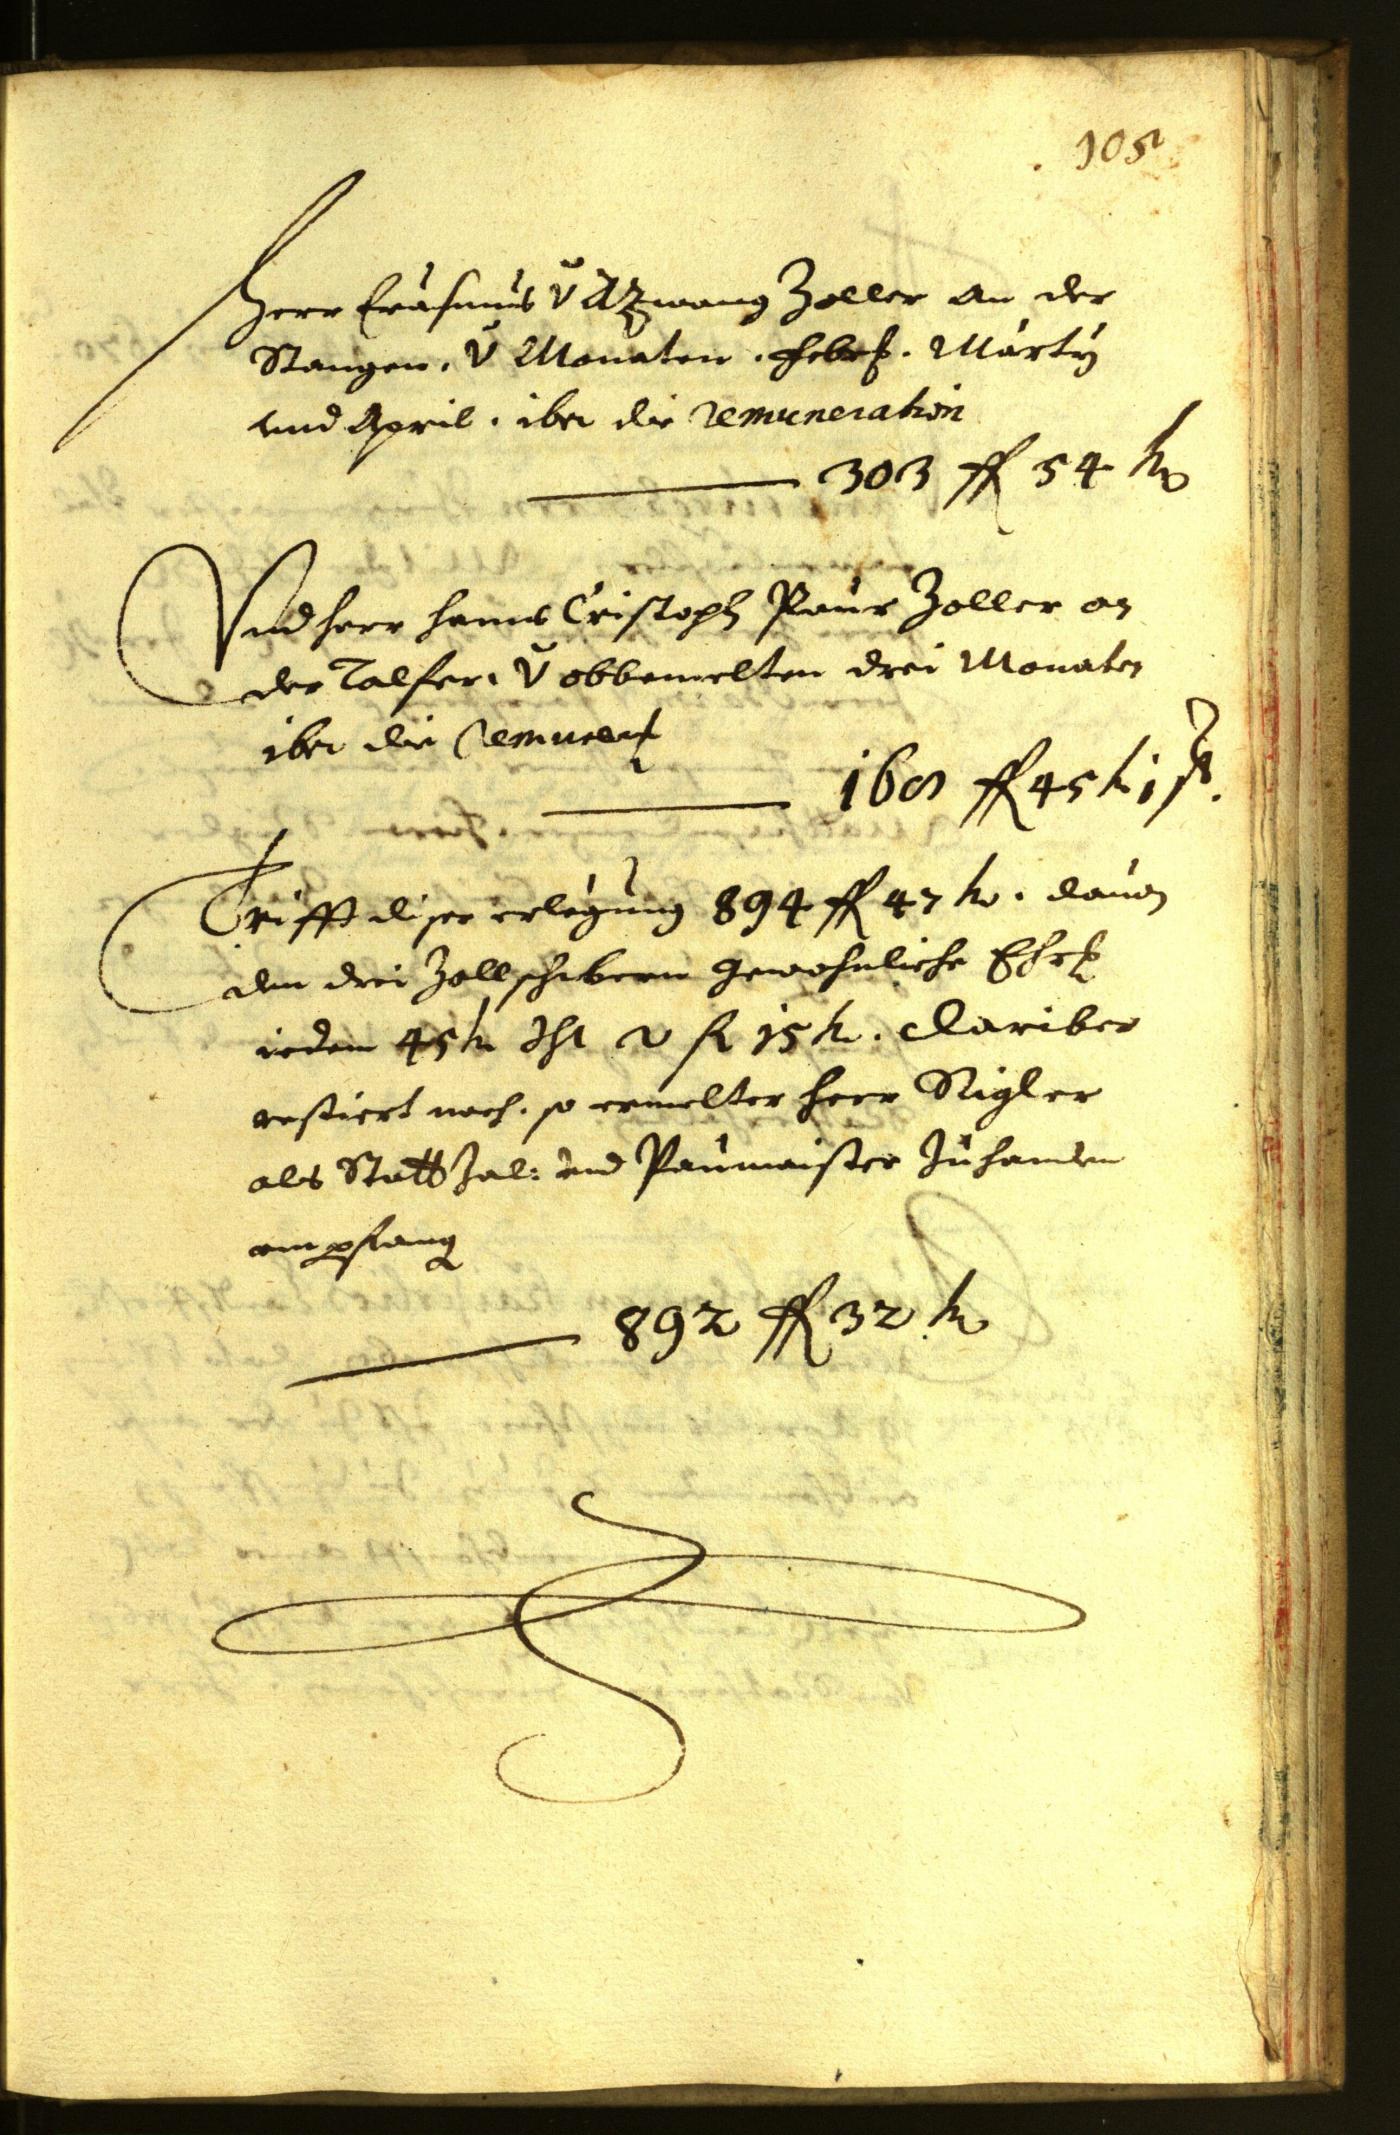 105
Herr Erasmus v Azwang Zoller an der
Stangen, v Monaten. Febr. Marty
und April. iber die remuneration
303 fl 54 kr
Und Herr Hanns Cristoph Paur Zoller an
der Talfer, v obbemelten drei Monaten
iber die Remuner
168 fl 45 kr 1
Trifft diser erlegung 894 fl 47 kr. davon
den drei Zollschribern gewohnliche
iedem 45 kr tht 2 fl 15 kr. dariber
restiert noch. so ermelter Herr Sigler
als Statt Zal: und Paumaister zuhanden
empfang
892 fl 32 kr